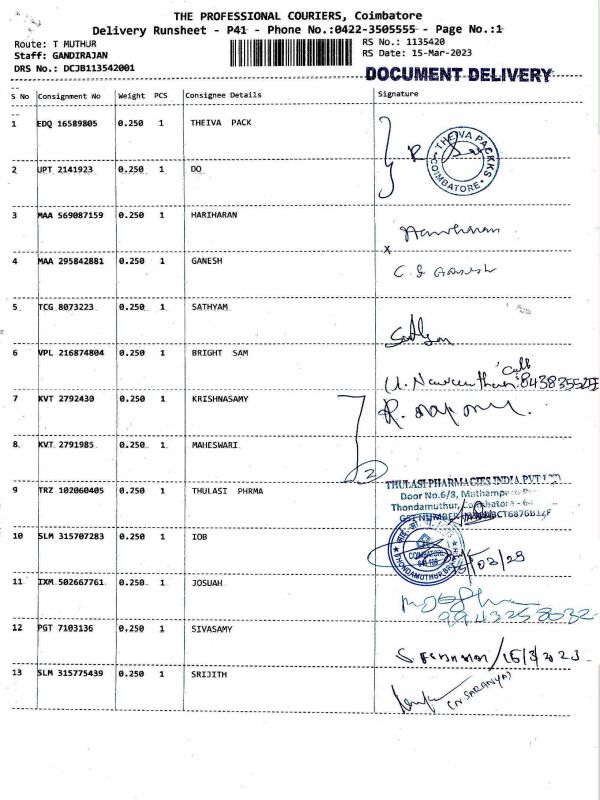 THE PROFESSIONAL COURIERS, Coimbatore
Delivery Runsheet - P41 - Phone No.:0422-3505555 - Page No.:1
Route: T MUTHUR
RS No.: 1135420
Staff: GANDIRAJAN
RS Date: 15-Mar-2023
DRS No.: DCJB113542001
DOCUMENT DELIVERY
S No Consignment No Weight PCS Consignee Details Signature
1 EDQ 16589805 0.250 1 THEIVA PACK
THEIVA PACKKS COIMBATORE
2 JPT 2141923 0.250 1 DO
3 MAA 569087159 0.250 1 HARIHARAN Hariharan
x
4 MAA 295842881 0.250 1 GANESH C. S Ganesh
5 TCG 8073223 0.250 1 SATHYAM Sathyam
6 VPL 216874804 0.250 1 BRIGHT SAM
7 KVT 2792430 0.250 1 KRISHNASAMY
8 KVT 2791985 0.250 1 MAHESWARI 2
9 TRZ 102060405 0.250 1 THULASI PHRMA
THULASI PHARMACIES INDIA PVT LTD
Door No.6/8,
Thondamuthur, Coimbatore
GST NUMBER
10 SLM 315707283 0.250 1 IOB
COIMBATORE
THONDAMUTHUR
11 IXM 502667761 0.250 1 JOSUAH
9943258032
12 PGT 7103136 0.250 1 SIVASAMY
13 SLM 315775439 0.250 1 SRIJITH (N.SARANYA)